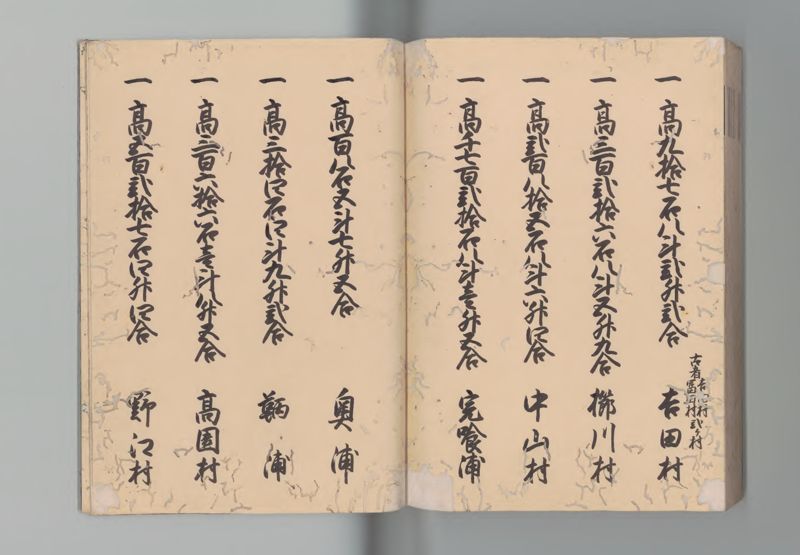 一 高九拾七石八斗弐升弐合 吉田村
古者
冨田村弐ヶ村
一 高三百弐拾六石八斗五升九合 櫛川村
一 高弐百八拾五石八斗六升四合 中山村
一 高千七百弐拾石八斗壱升五合 宍喰浦
一 高百八石五斗七升五合 奥浦
一 高三拾四石四斗九升弐合 鞆浦
一 高三百六拾六石壱斗八升五合 高園村
一 高五百弐拾七石四升四合 野江村